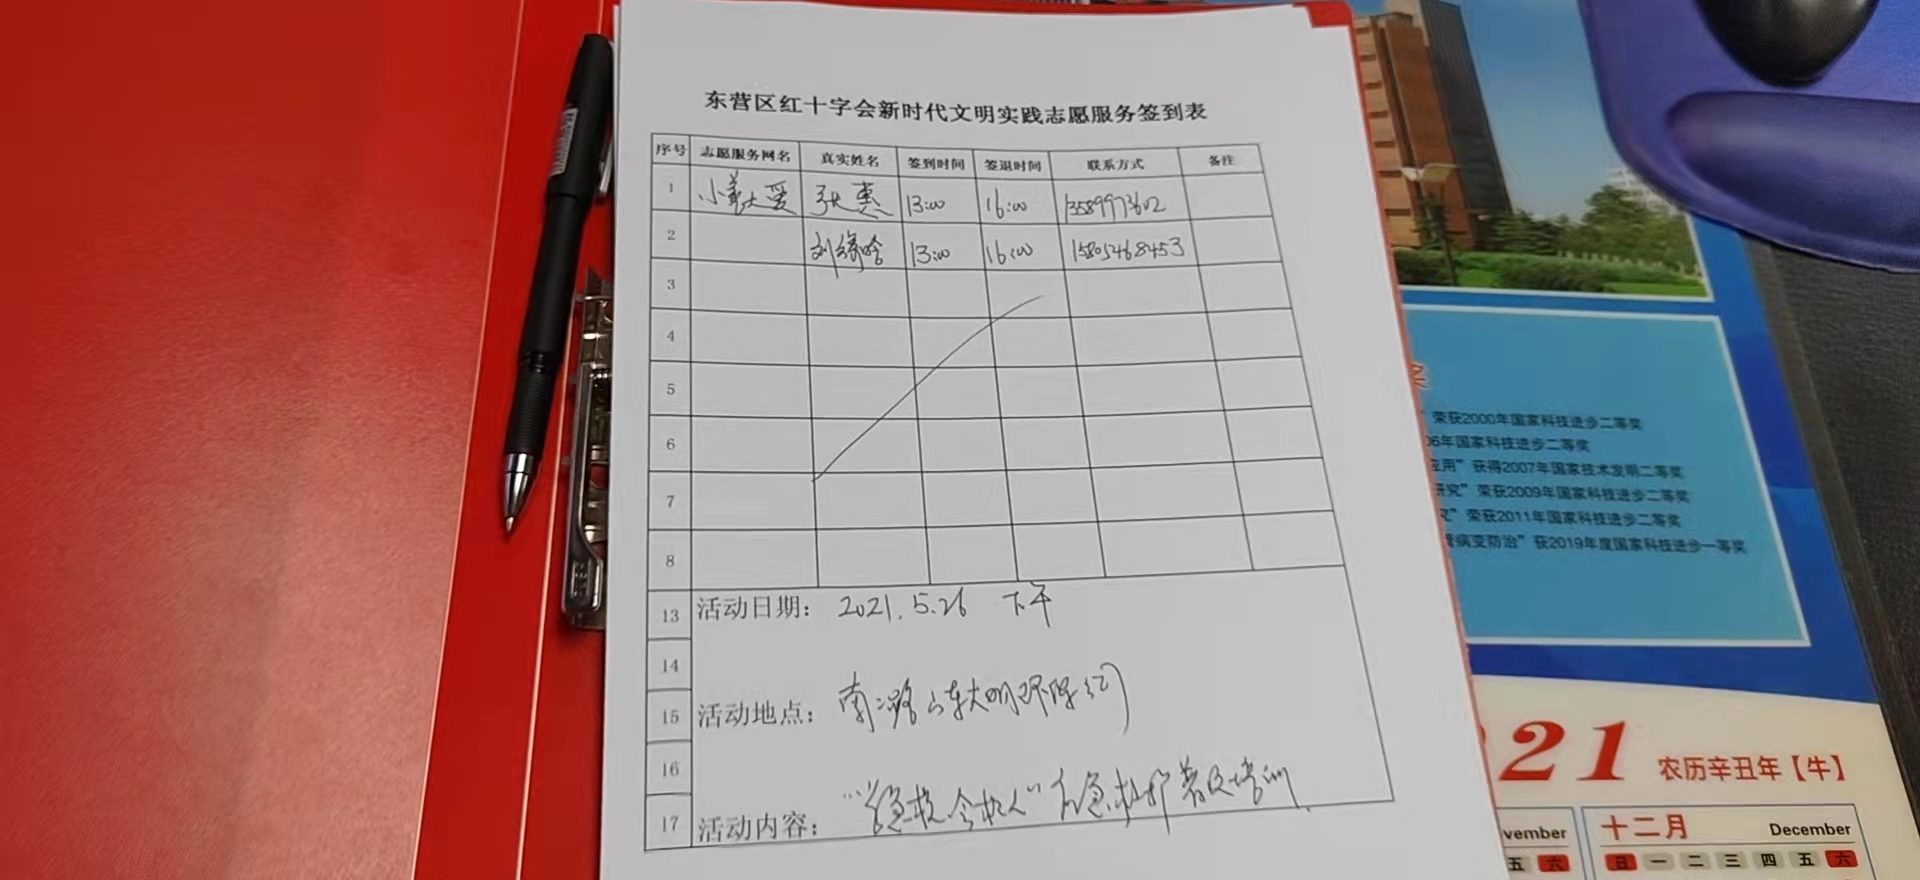 东营区红十字会新时代文明实践志愿服务签到表
序号 志愿服务网名 真实姓名 签到时间 签退时间 联系方式 备注
1 小善大爱 张惠 13:00 16:00 13589973602
2 刘缘晗 13:00 16:00 15805468453
3
4
5
6
7
8
13 活动日期: 2021.5.26 下午
14
15 活动地点: 南二路山东大明环保公司
16
17 活动内容: 应急救护普及培训
奖
荣获2000年国家科技进步二等奖
06年国家科技进步二等奖
应用”获得2007年国家技术发明二等奖
研究”荣获2009年国家科技进步二等奖
究”荣获2011年国家科技进步二等奖
病变防治”获2019年度国家科技进步一等奖
21 农历辛丑年【牛】
vember 十二月 December
五 六 日 一 二 三 四 五 六